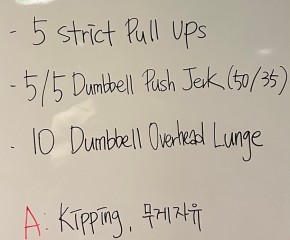 - 5 Strict Pull Ups
- 5/5 Dumbbell Push Jerk (50/35)
- 10 Dumbbell Overhead Lunge
A: Kipping, 무게자유